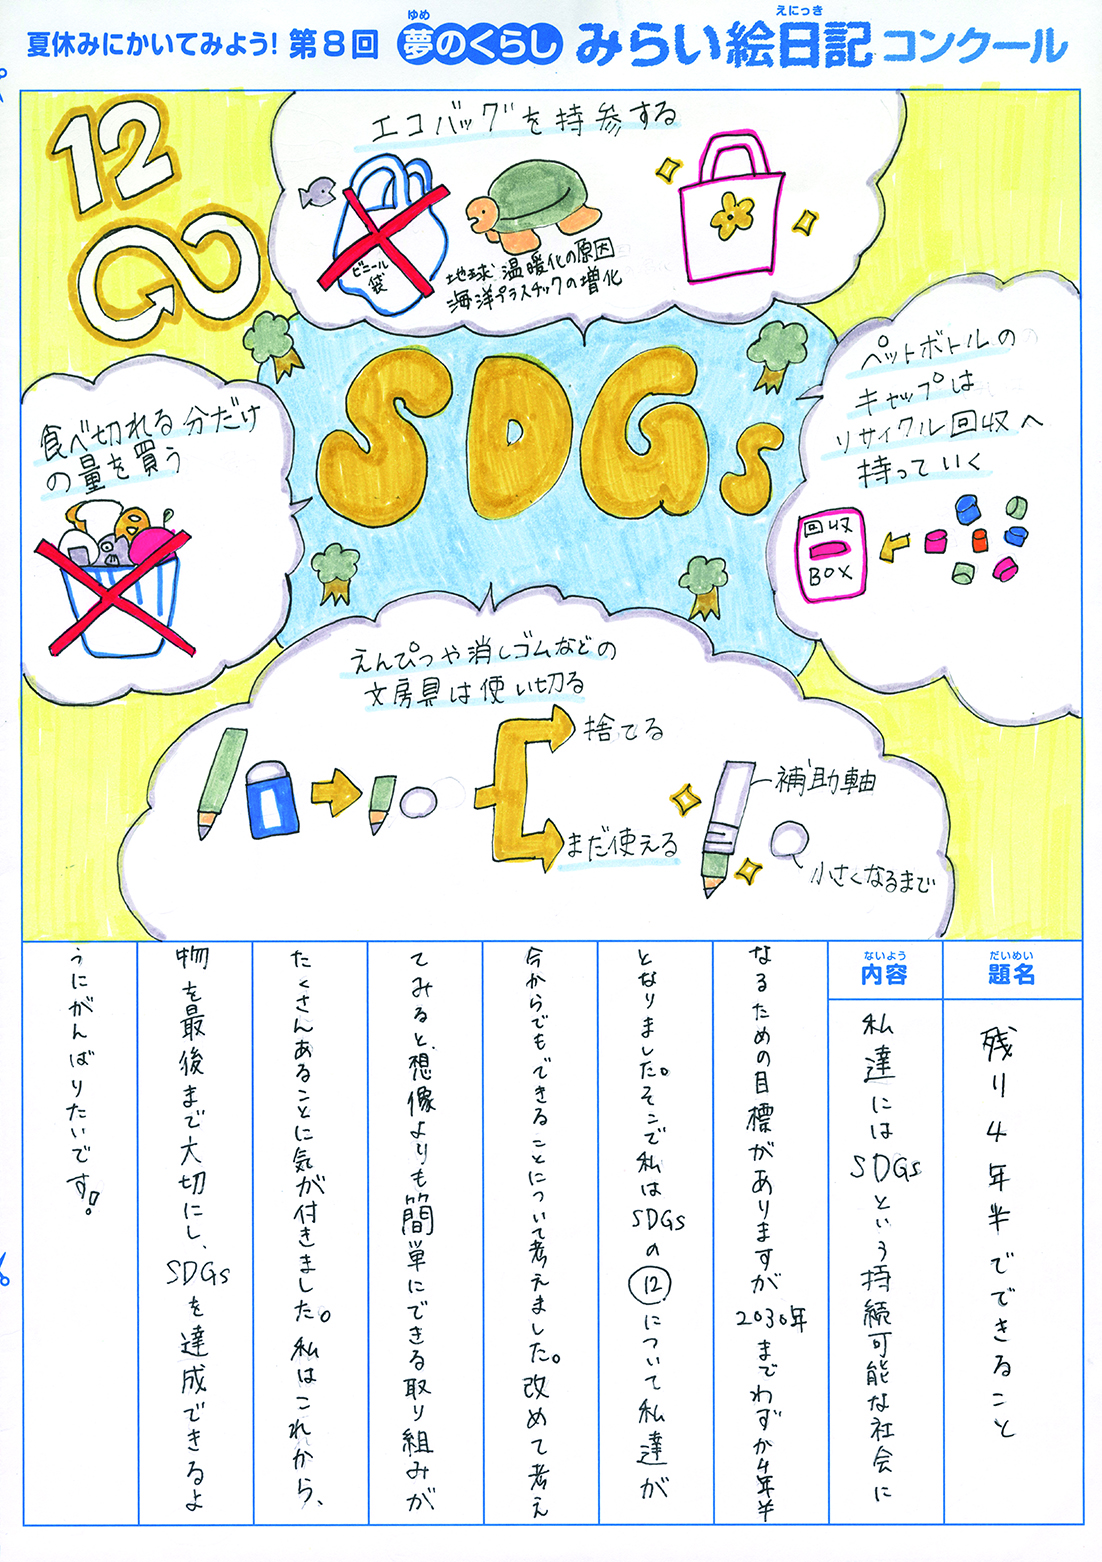 夏休みにかいてみよう! 第8回 夢のくらし みらい絵日記 コンクール
ゆめ
えにっき
12
エコバッグを持参する
ビニール
袋
地球温暖化の原因
海洋プラスチックの増化
SDGs
食べ切れる分だけ
の量を買う
ペットボトルの
キャップは
リサイクル回収へ
持っていく
回収
BOX
えんぴつや消しゴムなどの
文房具は使い切る
捨てる
まだ使える
補助軸
小さくなるまで
だいめい
題名
残り4年半でできること
ないよう
内容
私達にはSDGsという持続可能な社会に
なるための目標がありますが2030年までわずか4年半
となりました。そこで私はSDGsの⑫について私達が
今からでもできることについて考えました。改めて考え
てみると、想像よりも簡単にできる取り組みが
たくさんあることに気が付きました。私はこれから、
物を最後まで大切にし、SDGsを達成できるよ
うにがんばりたいです!